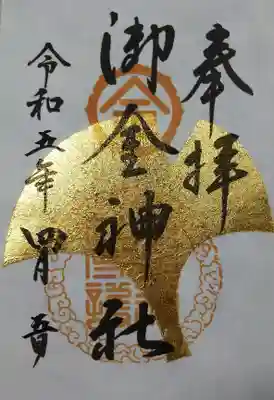 奉拝
御金神社
令和五年四月吾日